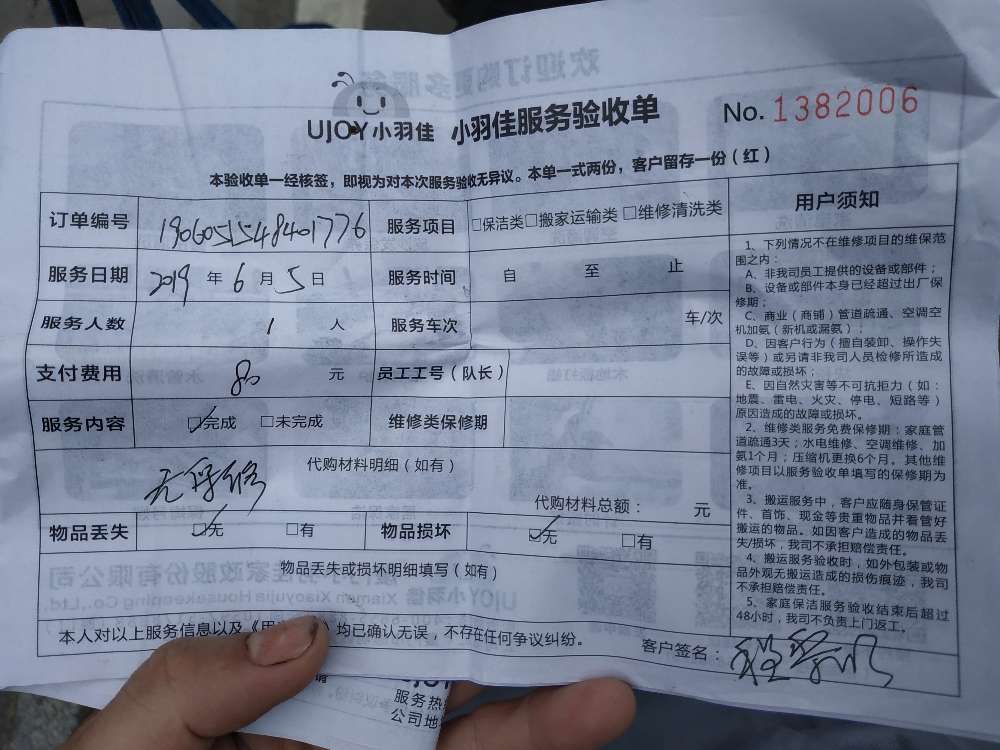 UJOY小羽佳 小羽佳服务验收单 No. 1382006
本验收单一经核签，即视为对本次服务验收无异议。本单一式两份，客户留存一份（红）
订单编号 1906051548401776 服务项目 □保洁类□搬家运输类 □维修清洗类
服务日期 2019 年 6 月 5 日 服务时间 自 至 止
服务人数 1 人 服务车次 车/次
支付费用 80 元 员工工号（队长）
服务内容 ☑完成 □未完成 维修类保修期
代购材料明细（如有）
无保修
代购材料总额： 元
物品丢失 ☑无 □有 物品损坏 ☑无 □有
物品丢失或损坏明细填写（如有）
本人对以上服务信息以及《用 》均已确认无误，不存在任何争议纠纷。
客户签名：
用户须知
1、下列情况不在维修项目的维保范
围之内：
A、非我司员工提供的设备或部件；
B、设备或部件本身已经超过出厂保
修期；
C、商业（商铺）管道疏通、空调空
机加氨（新机或漏氨）；
D、因客户行为（擅自装卸、操作失
误等）或另请非我司人员检修所造成
的故障或损坏；
E、因自然灾害等不可抗拒力（如：
地震、雷电、火灾、停电、短路等）
原因造成的故障或损坏。
2、维修类服务免费保修期：家庭管
道疏通3天；水电维修、空调维修、加
氨1个月；压缩机更换6个月。其他维
修项目以服务验收单填写的保修期为
准。
3、搬运服务中，客户应随身保管证
件、首饰、现金等贵重物品并看管好
搬运的物品。如因客户造成的物品丢
失/损坏，我司不承担赔偿责任。
4、搬运服务验收时，如外包装或物
品外观无搬运造成的损伤痕迹，我司
不承担赔偿责任。
5、家庭保洁服务验收结束后超过
48小时，我司不负责上门返工。
UJOY
服务热
公司地